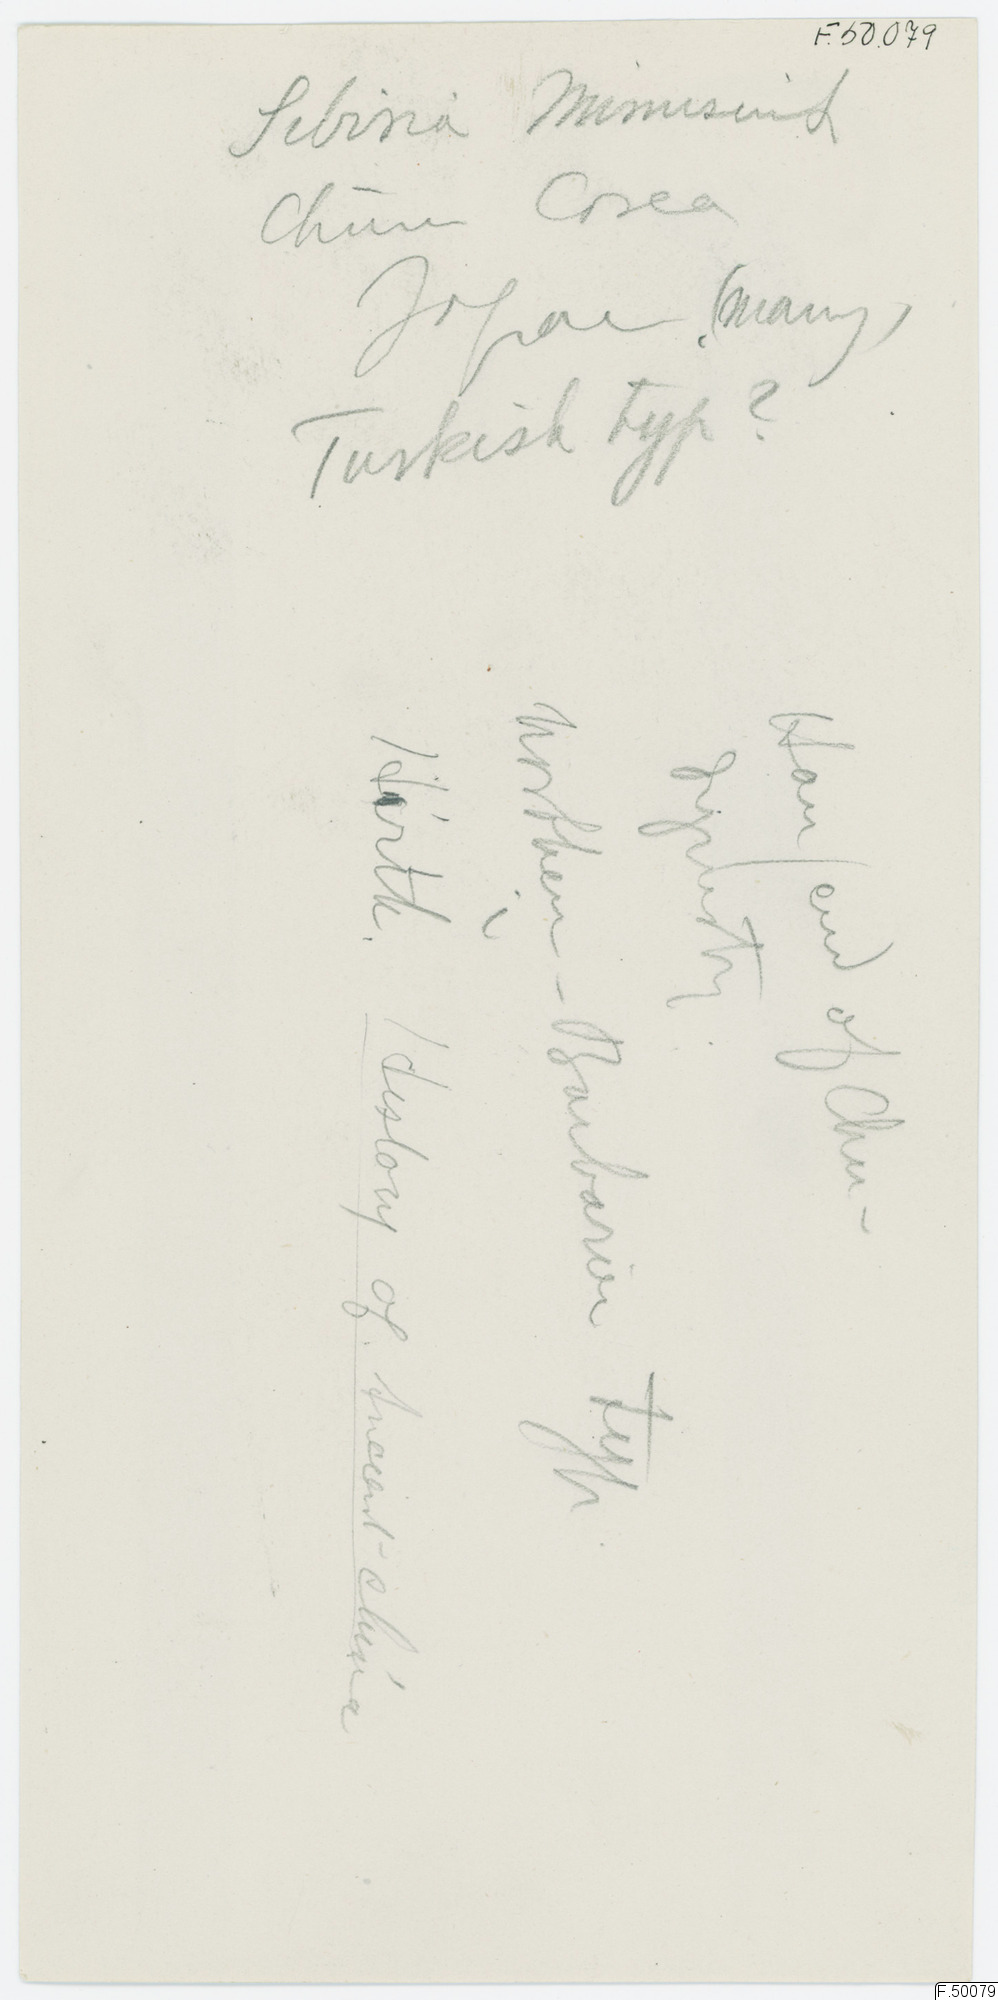 F.50.079
Sibiria Minusinsk
China Corea
Japan (many)
Turkish typ?
Han (end of Chu-
dynasty
Northern-Barbarian typ.
Hirth. History of Ancient-China
F.50079